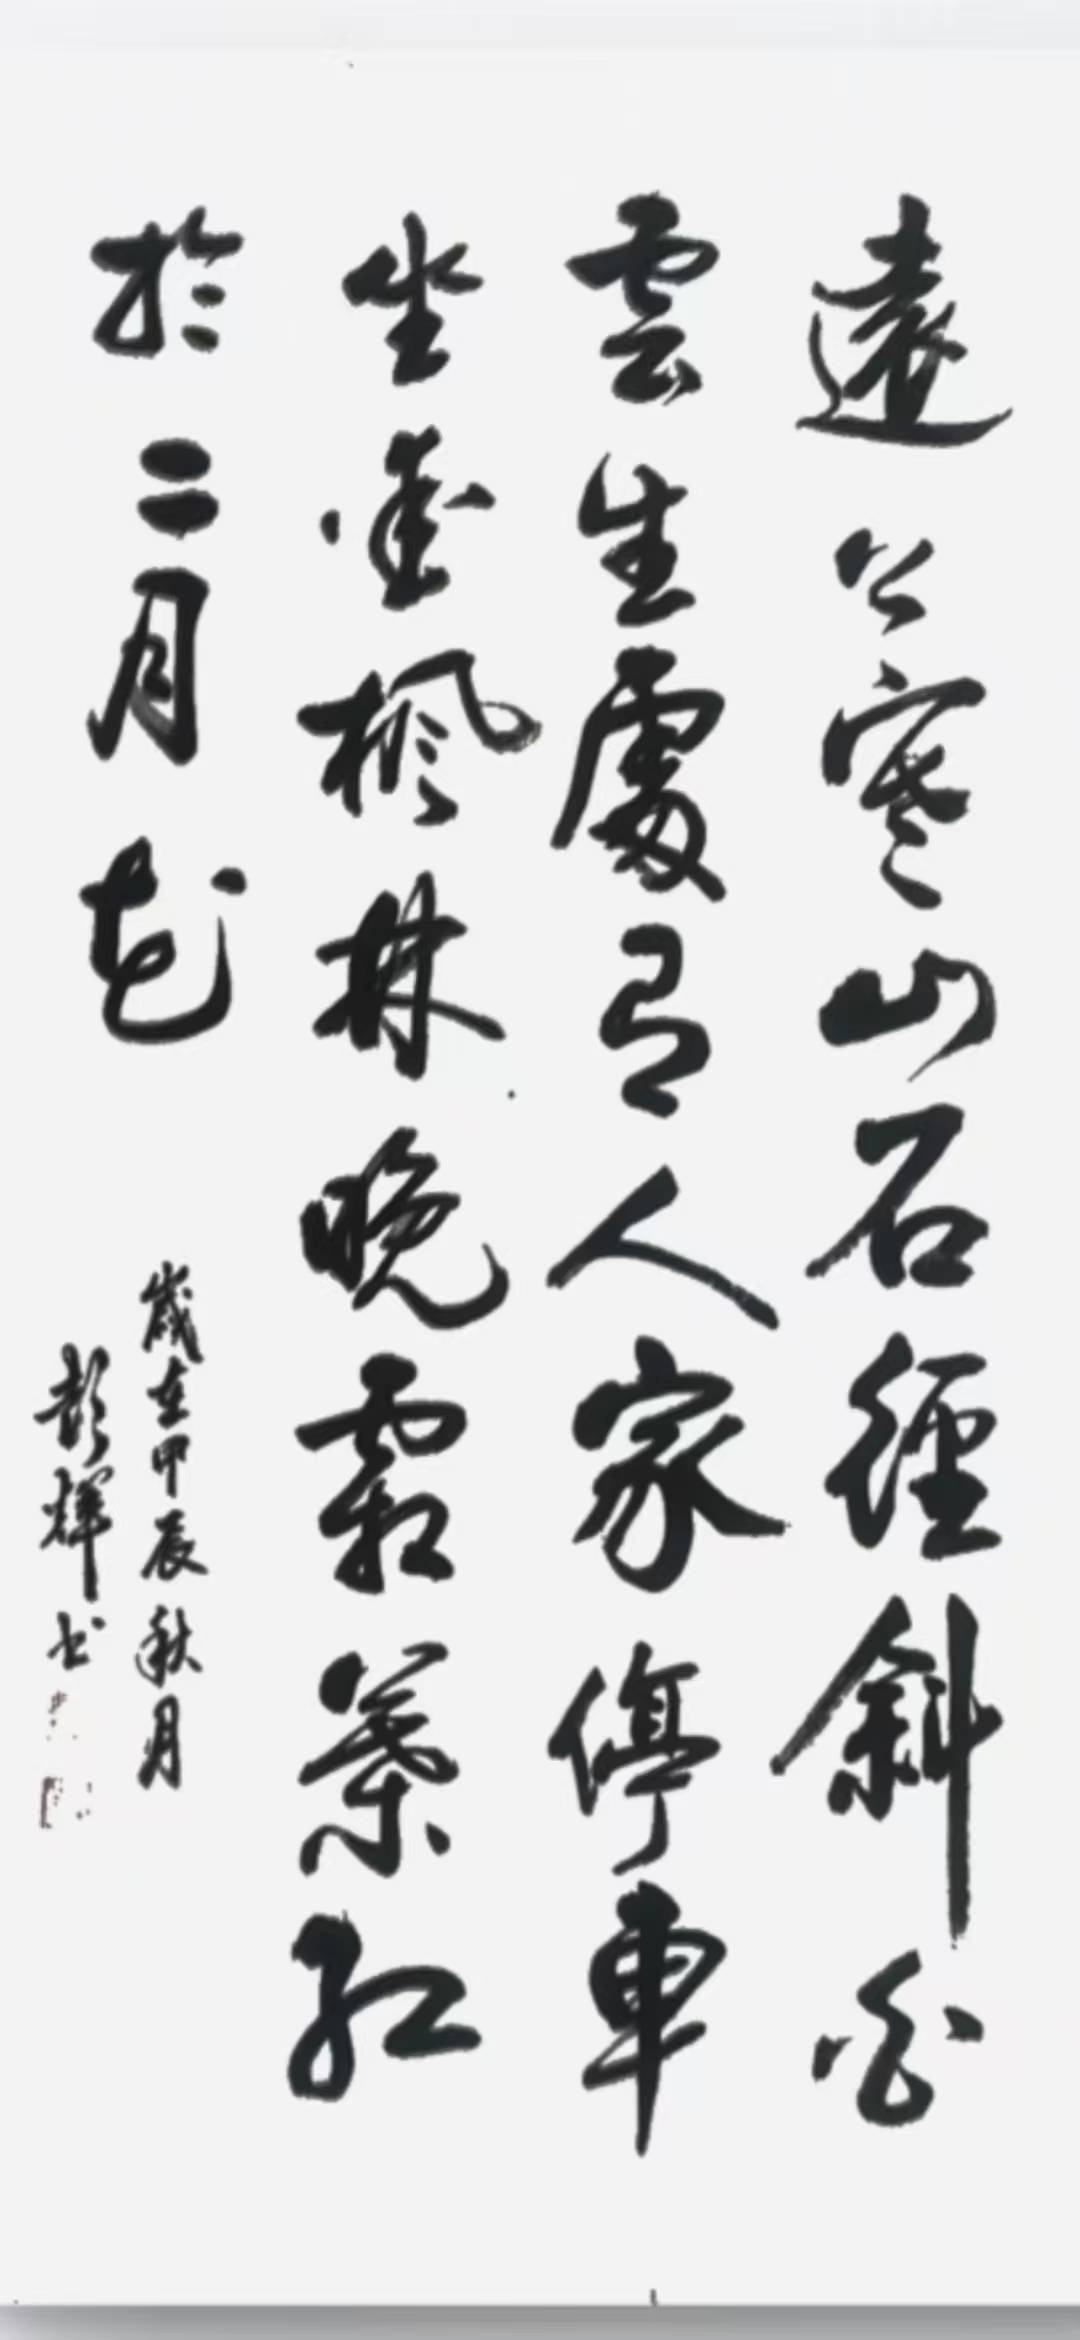 遠上寒山石徑斜白
雲生處有人家停車
坐愛楓林晚霜葉紅
於二月花
歲在甲辰秋月
彭輝书